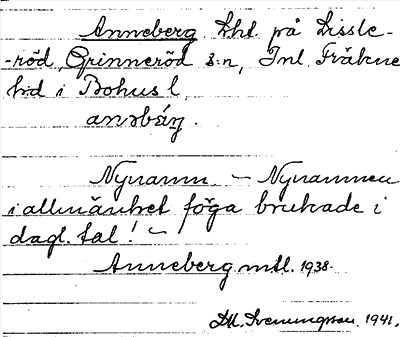 Anneberg Lht. på Lissle-
-röd, Grinneröd s:n, Inl. Fräkne
hd i Bohusl.
Nynamn – Nynamnen
i allmänhet föga brukade i
dagl. tal! –
Anneberg mtl. 1938.
D.H. Sveningsson. 1941.